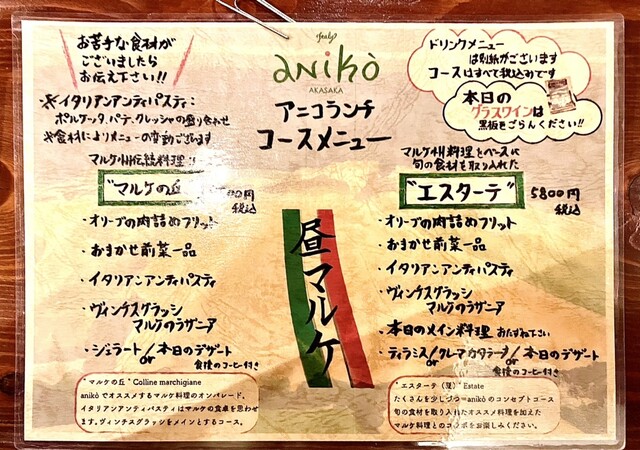 お苦手な食材が
ございましたら
お伝え下さい!!
※イタリアンアンティパスティ:
ポルケッタ、パテ、クレッシャの盛り合わせ
※食材によりメニューの変動ございます
Italy
anikò
AKASAKA
アニコランチ
コースメニュー
ドリンクメニュー
は別紙がございます
コースはすべて税込みです
本日の
グラスワインは
黒板をごらんください!!
マルケ州伝統料理
"マルケの丘
00円
税込
・オリーブの肉詰めフリット
・おまかせ前菜一品
・イタリアンアンティパスティ
・ヴィンチスグラッシ
マルケのラザニア
・ジェラート/or本日のデザート
食後のコーヒー付き
"マルケの丘" Colline marchigiane
anikò でオススメするマルケ料理のオンパレード。
イタリアンアンティパスティはマルケの食卓を思わせ
ます。ヴィンチスグラッシをメインとするコース。
昼マルケ
マルケ州料理をベースに
旬の食材を取り入れた
"エスターテ"
5800円
税込
・オリーブの肉詰めフリット
・おまかせ前菜一品
・イタリアンアンティパスティ
・ヴィンチスグラッシ
マルケのラザニア
・本日のメイン料理 おたずね下さい
・ティラミス/orクレマカタラーナ/or本日のデザート
食後のコーヒー付き
"エスターテ（夏）" Estate
たくさんを少しづつ＝anikò のコンセプトコース
旬の食材を取り入れたオススメ料理を加えた
マルケ料理とのコラボをお楽しみください。